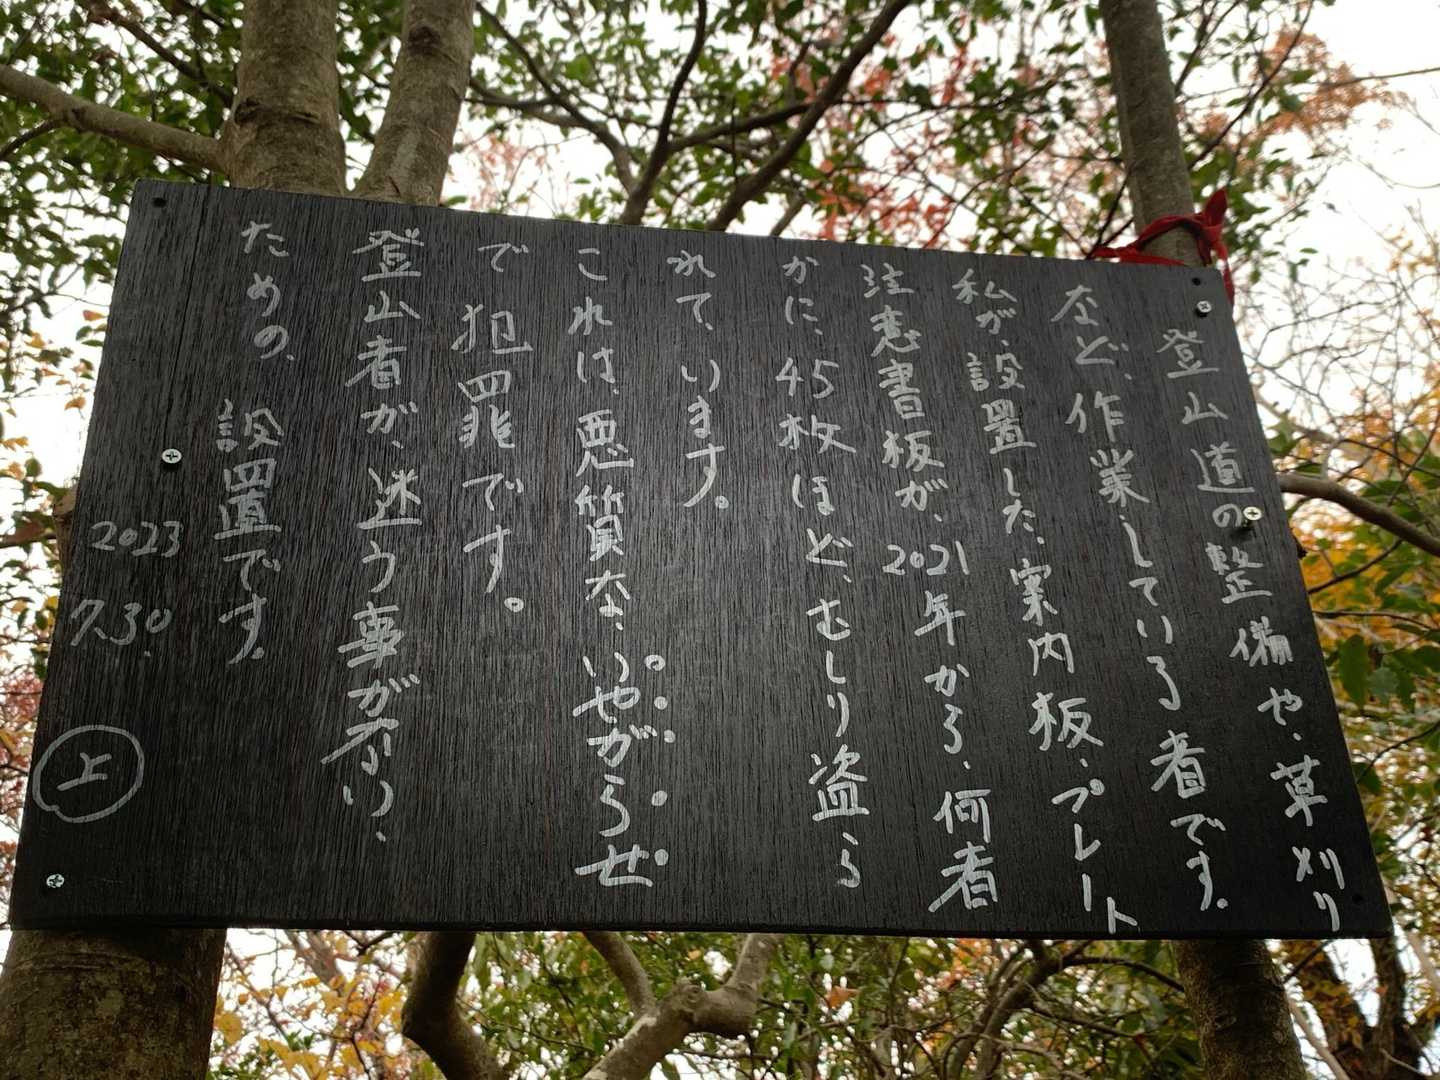 登山道の整備や、草刈り
など、作業している者です。
私が、設置した、案内板、プレート
注意書板が、2021年から、何者
かに、45枚ほど、むしり盗ら
れて、います。
これは、悪質な、いやがらせ
で 犯罪です。
登山者が、迷う事がない、
ための、 設置です。
2023
7.30.
上